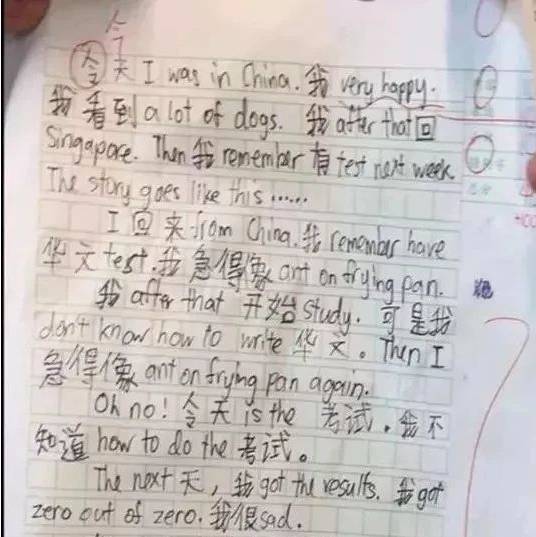 今
令天 I was in China. 我 very happy.
我看到 a lot of dogs. 我 after that 回
Singapore. Then 我 remember 有 test next week.
The story goes like this......
I 回来 from China. 我 remember have
华文 test. 我急得像 ant on frying pan.
我 after that 开始 study. 可是我
don't know how to write 华文。Then I
急得像 ant on frying pan again.
Oh no! 令天 is the 考试. 我不
知道 how to do the 考试。
The next 天, 我 got the results. 我 got
zero out of zero. 我很 sad.